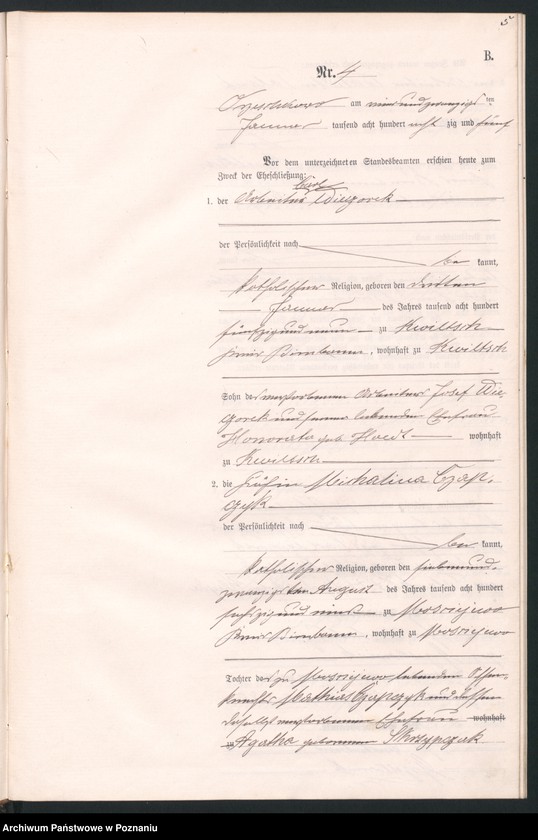 5
B.
Nr. 4
am neunundzwanzigs ten
Januar tausend acht hundert acht zig und fünf
Vor dem unterzeichneten Standesbeamten erschien heute zum
Zweck der Eheschließung:
1. der Arbeiter Wiegorek
der Persönlichkeit nach
be kannt,
katholischer Religion, geboren den dritten
Januar des Jahres tausend acht hundert
fünfzig und neun zu Kwiltsch
Kreis Birnbaum, wohnhaft zu Kwiltsch
Sohn des verstorbenen Arbeiters Josef Wie-
gorek und seiner lebenden Ehefrau
Honorata geb. wohnhaft
zu Kwiltsch
2. die Michalina Czap-
czyk
der Persönlichkeit nach
be kannt,
katholischer Religion, geboren den siebenund-
zwanzigsten August des Jahres tausend acht hundert
sechszig und zu
Kreis Birnbaum, wohnhaft zu
Tochter des zu lebenden Ochsen-
knechts Mathias Czapczyk und dessen
daselbst verstorbenen Ehefrau wohnhaft
zu Agatha geborenen Skrzypczak
Archiwum Państwowe w Poznaniu